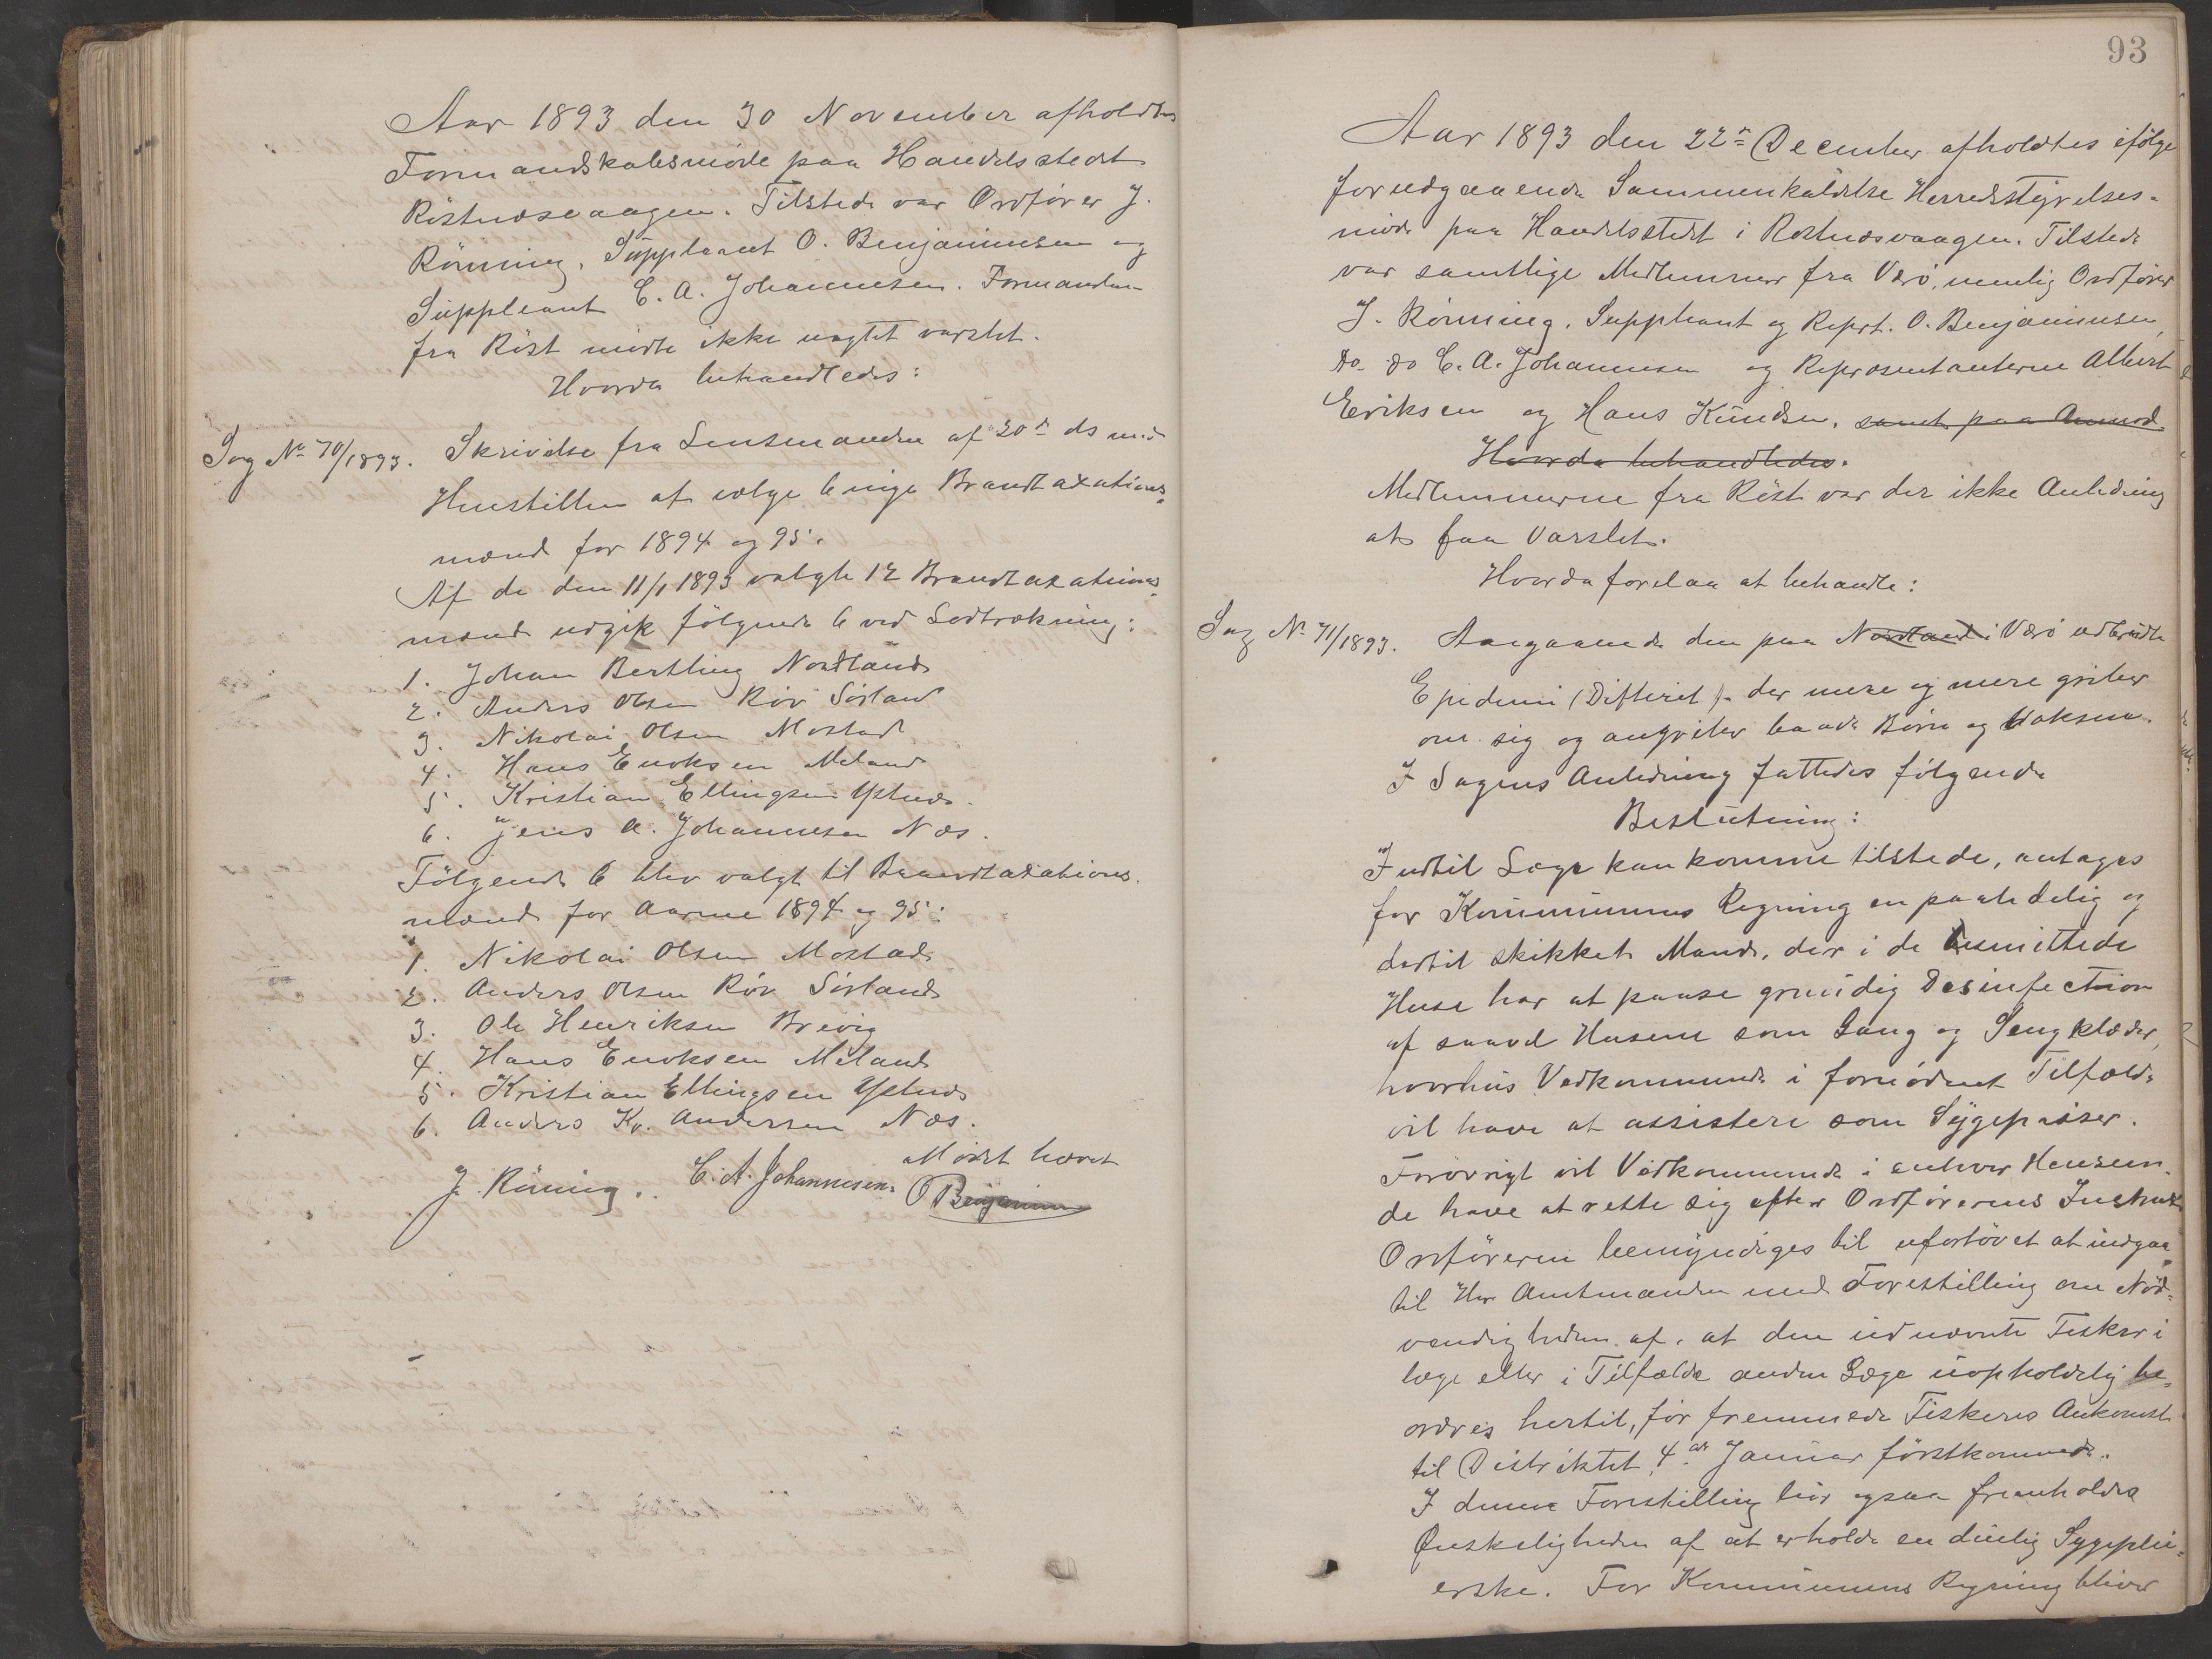 Aar 1893 den 30 November afholdtes
Formandskabsmöde paa Handelsstedet
Röstnæsvaagen. Tilstede var Ordförer J.
Rönning, Suppleant O. Benjaminsen og
Suppleant C. A. Johannesen. Formanden
fra Röst mödte ikke uagtet varslet.
Hvorda behandledes:
Sag No 70/1893. Skrivelse fra Lensmanden af 30te ds med
Henstillen at vælge 6 nye Brandtaxations-
mænd for 1894 og 95.
Af de den 11/1 1893 valgte 12 Brandtaxations-
mænd udgik fölgende 6 ved Lodtrækning:
1. Johan Berthing Nordland
2. Anders Olsen Röv Sörland
3. Nikolai Olsen Mostad
4. Hans Enoksen Meland
5. Kristian Ellingsen Ystnæs.
6. Jens A. Johannesen Næs.
Fölgende 6 blev valgt til Brandtaxations-
mænd for Aarene 1894 og 95:
1. Nikolai Olsen Mostad
2. Anders Olsen Röv Sörland
3. Ole Henriksen Brevig
4. Hans Enoksen Meland
5. Kristian Ellingsen Ystnæs
6. Anders Kr. Andersen Næs.
Mödet hævet
J. Röning. C. A. Johannesen. O Benjaminsen
93
Aar 1893 den 22de December afholdtes ifölge
forudgaaende Sammenkaldelse Herredsstyrelses-
möde paa Handelsstedet i Röstnæsvaagen. Tilstede
var samtlige Medlemmer fra Værö, nemlig Ordförer
J. Rönning, Suppleant og Reprt. O. Benjaminsen,
do do C. A. Johannesen og Repræsentanterne Albert
Eriksen og Hans Knudsen, samt paa Anmod-
Hvorda behandledes.
Medlemmerne fra Röst var der ikke Anledning
at faa Varslet.
Hvorda forelaa at behandle:
Sag No 71/1893. Angaaende den paa Nordland i Værö udbrudte
Epidemi (Difterit) der mere og mere griber
om sig og angriber baade Börn og Voksne.
I Sagens Anledning fattedes fölgende
Beslutning:
Indtil Læge kan komme tilstede, antages
for Kommunens Regning en paalidelig og
dertil skikket Mand, der i de besmittede
Huse har at paase grundig Desinfection
af saavel Husene som Gang og Sengklæder,
hvorhos Vedkommende i fornödent Tilfælde
vil have at assistere som Sygepasser.
Forövrigt vil Vedkommende i enhver Henseen-
de have at rette sig efter Ordförerens Instruks
Ordföreren bemyndiges til ufortövet at indgaa
til Hr Amtmanden med Forestilling om Nöd-
vendigheden af, at den udnævnte Fiskeri
læge eller i Tilfælde anden Læge uopholdelig be-
ordres hertil, för fremmede Fiskeres Ankomst
til Distriktet, 4de Januar förstkommende.
I denne Forestilling bör ogsaa fremholdes
Önskeligheden af at erholde en duelig Sygeplei-
erske. For Kommunens Regning bliver